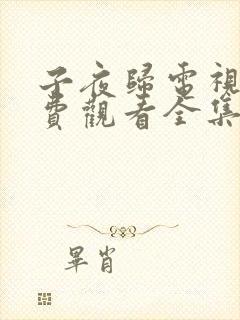 子夜歸電視
費觀看全集
畢肖